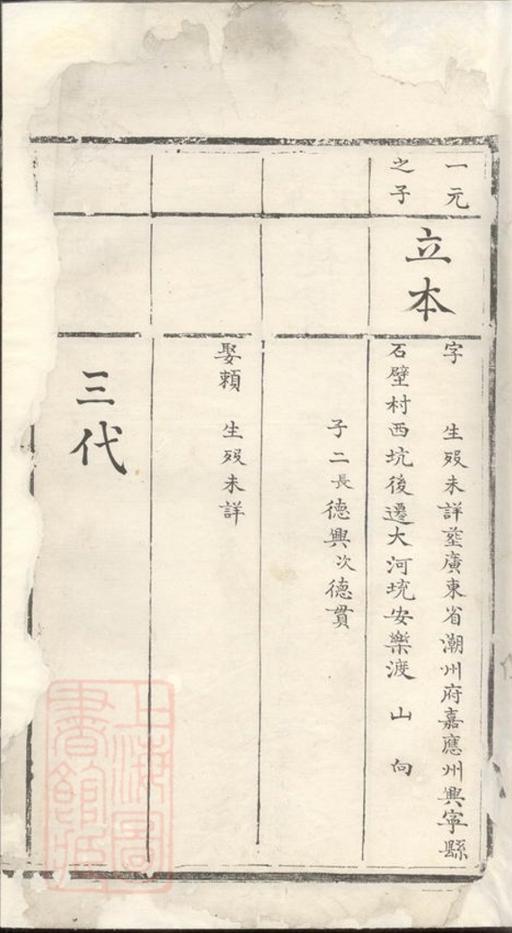 一元
之子
立本
字　生歿未詳塟廣東省潮州府嘉應州興寧縣
石壁村西坑後遷大河坑安樂渡　山　向
子二長德興次德貫
娶賴　生歿未詳
三代
上海圖
書館藏